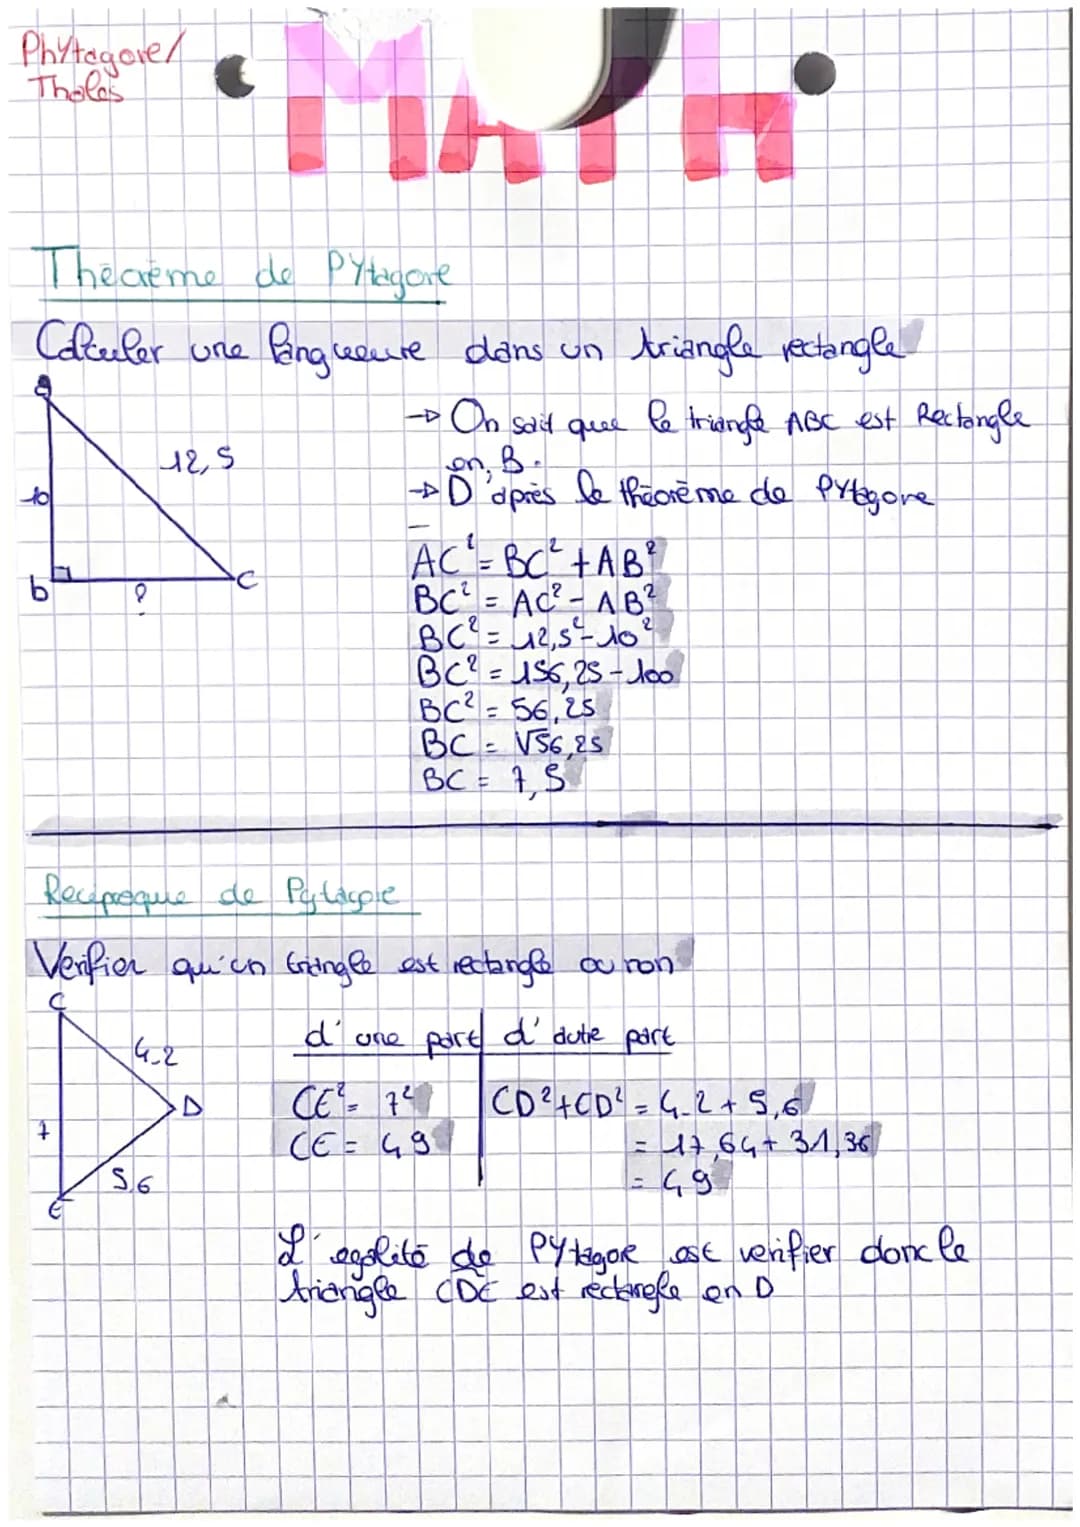 Phytagore/
Thales
MATH
Théorème de PYtagore
Calculer une longueure dans un triangle rectangle
12,5
10
b
?
C
→ On sait que le triangle ABC est Rectangle
en, B.
→ D'après le théorème de PYtagore
AC² = BC² + AB²
BC² = AC² - AB²
BC² = 12,5² - 10²
BC² = 156,25 - 100
BC² = 56,25
BC = √56,25
BC = 7,5
Reciproque de Pytagore
Verifier qu'un triangle est rectangle ou non
C
4.2
D
7
5.6
E
d'une part d'autre part
CE² = 7² CD²+CD² = 4.2 + 5,6
CE = 49 = 17,64 + 31,36
= 49
L'egalité de PYtagore est verifier donc le
triangle CDE est rectangle en D